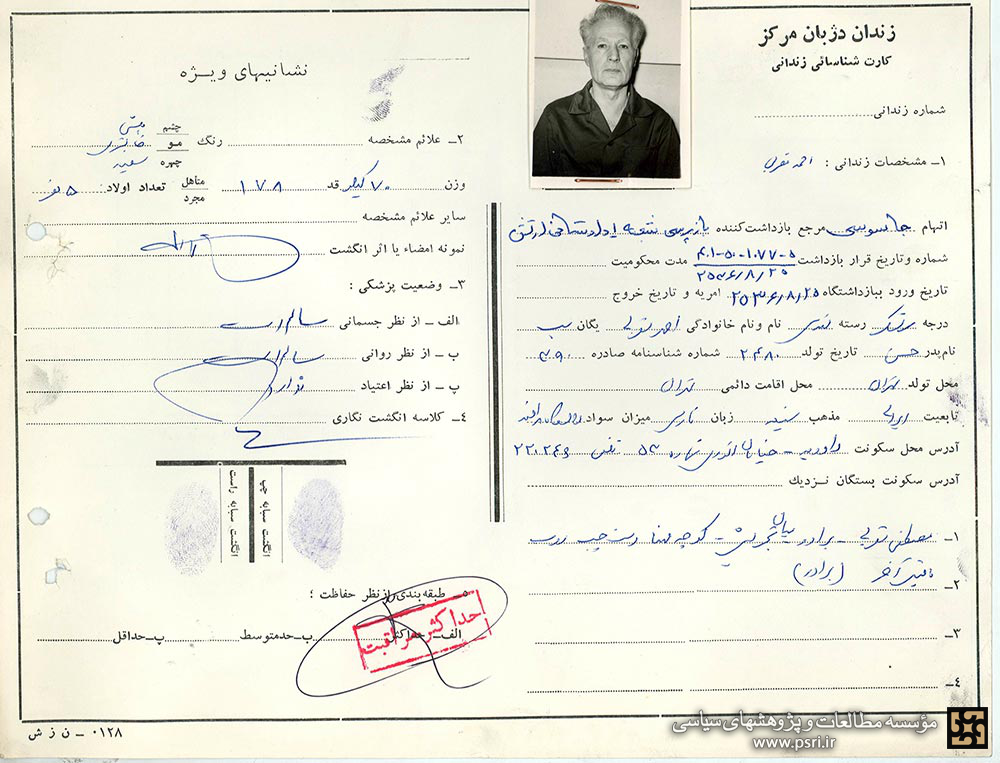 زندان دژبان مرکز
کارت شناسائی زندانی
شماره زندانی
۱ـ مشخصات زندانی : احمد مقربی
اتهام جاسوسی مرجع بازداشت‌کننده بازپرسی شعبه
شماره و تاریخ قرار بازداشت ۵-۱۰۷۷-۵۰-۴۰۱ مدت محکومیت
۲۵۳۶/۸/۲۵
تاریخ ورود ببازداشتگاه ۲۵۳۶/۸/۲۵ امریه و تاریخ خروج
درجه سرلشگر رسته نام و نام خانوادگی احمد مقربی یگان
نام‌پدر حسن تاریخ تولد ۲۴۸۰ شماره شناسنامه صادره ۴۹۰
محل تولد تهران محل اقامت دائمی تهران
تابعیت ایرانی مذهب شیعه زبان فارسی میزان سواد
آدرس محل سکونت داودیه - خیابان شماره ۵۴ تلفن ۲۲۰۲۴۶
آدرس سکونت بستگان نـزدیك
۱ـ مصطفی مقربی - برادر - کوچه دست چپ درب
۲ـ آخر (برادر)
۳ـ
۴ـ
نشانیهای ویـژه
۲ـ علائم مشخصه رنگ چشم میشی
مو خاکستری
چهره سفید
وزن ۷۰ کیلو قد ۱۷۸ متاهل مجرد تعداد اولاد: ۵ نفر
سایر علائم مشخصه
نمونه امضاء یا اثر انگشت
۳ـ وضعیت پزشکی :
الف ـ از نظر جسمانی سالم است
ب ـ از نظر روانی سالم است
پ ـ از نظر اعتیاد ندارد
۴ـ کلاسه انگشت نگاری
انگشت سبابه چپ
انگشت سبابه راست
۵ـ طبقه‌بندی از نظر حفاظت ؛
الف ـ حداکثر ب‌ـ‌حدمتوسط پ‌ـ‌حداقل
حداکثر مراقبت
۰۱۲۸ ـ ن ز ش
مؤسسه مطالعات و پژوهشهای سیاسی
www.psri.ir